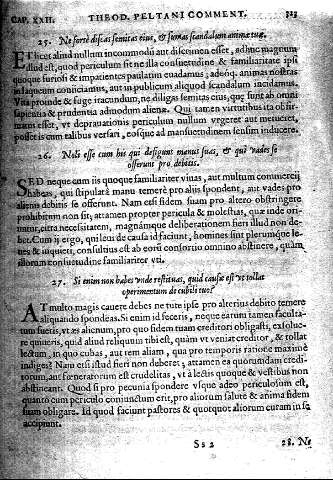 CAP. XXII. THEOD. PELTANI COMMENT. 323
25. Ne fortè discas semitas eius, & sumas scandalum animæ tuæ.
ET licet aliud nullum incommodū aut discrimen esset, adhuc magnum
illud est, quod periculum sit ne illa consuetudine & familiaritate ipsi
quoque furiosi & impatientes paulatim euadamus; adeóq. animas nostras
in laqueum coniiciamus, aut in publicum aliquod scandalum incidamus.
Vita proinde & fuge iracundum, ne diligas semitas eius, quæ sunt ab omni
sapientia & prudentia aduodum alienæ. Qui tamen virtutibus ita obfir-
matus esset, vt deprauationis periculum nullum vegeret aut metueret,
posset is cum talibus versari, eosque ad mansuetudinem sensim inducere.
26. Noli esse cum his qui defigunt manus suas, & qui vades se
offerunt pro debitis.
SED neque cum iis quoque familiariter viuas, aut multum commercij
habeas, qui stipulatâ manu temerè pro aliis spondent, aut vades pro
alienis debitis se offerunt. Nam etsi fidem suam pro altero obstringere
prohibitum non sit; attamen propter pericula & molestias, quæ inde ori-
untur, citra necessitatem, magnámque deliberationem fieri illud non de-
bet. Cum ij ergo, qui leui de causa id faciunt, homines sint plerumque le-
ues & inquieti, consultius est ab eorū consortio omnino abstinere, quàm
illorum consuetudine familiariter vti.
27. Si enim non habes vnde restituas, quid causæ est vt tollat
operimentum de cubili tuo?
AT multo magis cauere debes ne tute ipse pro alterius debito temere
aliquando spondeas. Si enim id feceris, neque earum tamen faculta-
tum fueris, vt æs alienum, pro quo fidem tuam creditori obligasti, exsolue-
re queueris, quid aliud reliquum tibi est, quàm vt veniat creditor, & tollat
lectum, in quo cubas, aut rem aliam, qua pro temporis ratione maximè
indiges? Nam etsi istud fieri non deberet; attamen ea quorumdam credi-
torum, aut fœneratorum est crudelitas, vt à lectis quoque & vestibus non
abstineant. Quod si pro pecunia spondere vsque adeo periculosum est,
quanto cum periculo coniunctum erit, pro aliorum salute & anima fidem
suam obligare. Id quod faciunt pastores & quotquot aliorum curam in se
accipiunt.
Ss 2 28. Ne